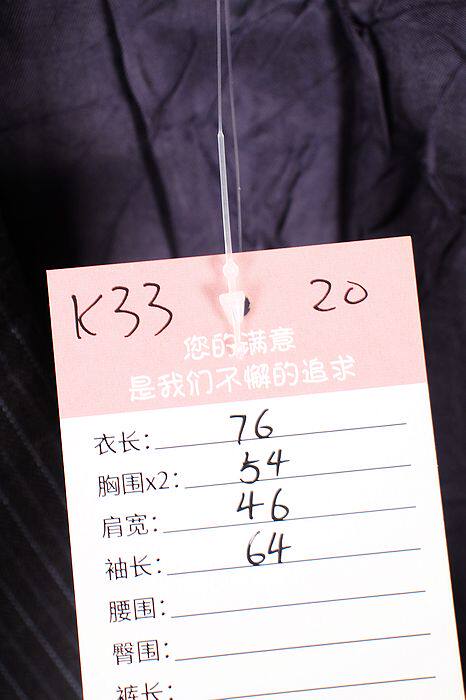 K33 20
您的满意
是我们不懈的追求
衣长: 76
胸围x2: 54
肩宽: 46
袖长: 64
腰围:
臀围:
裤长: